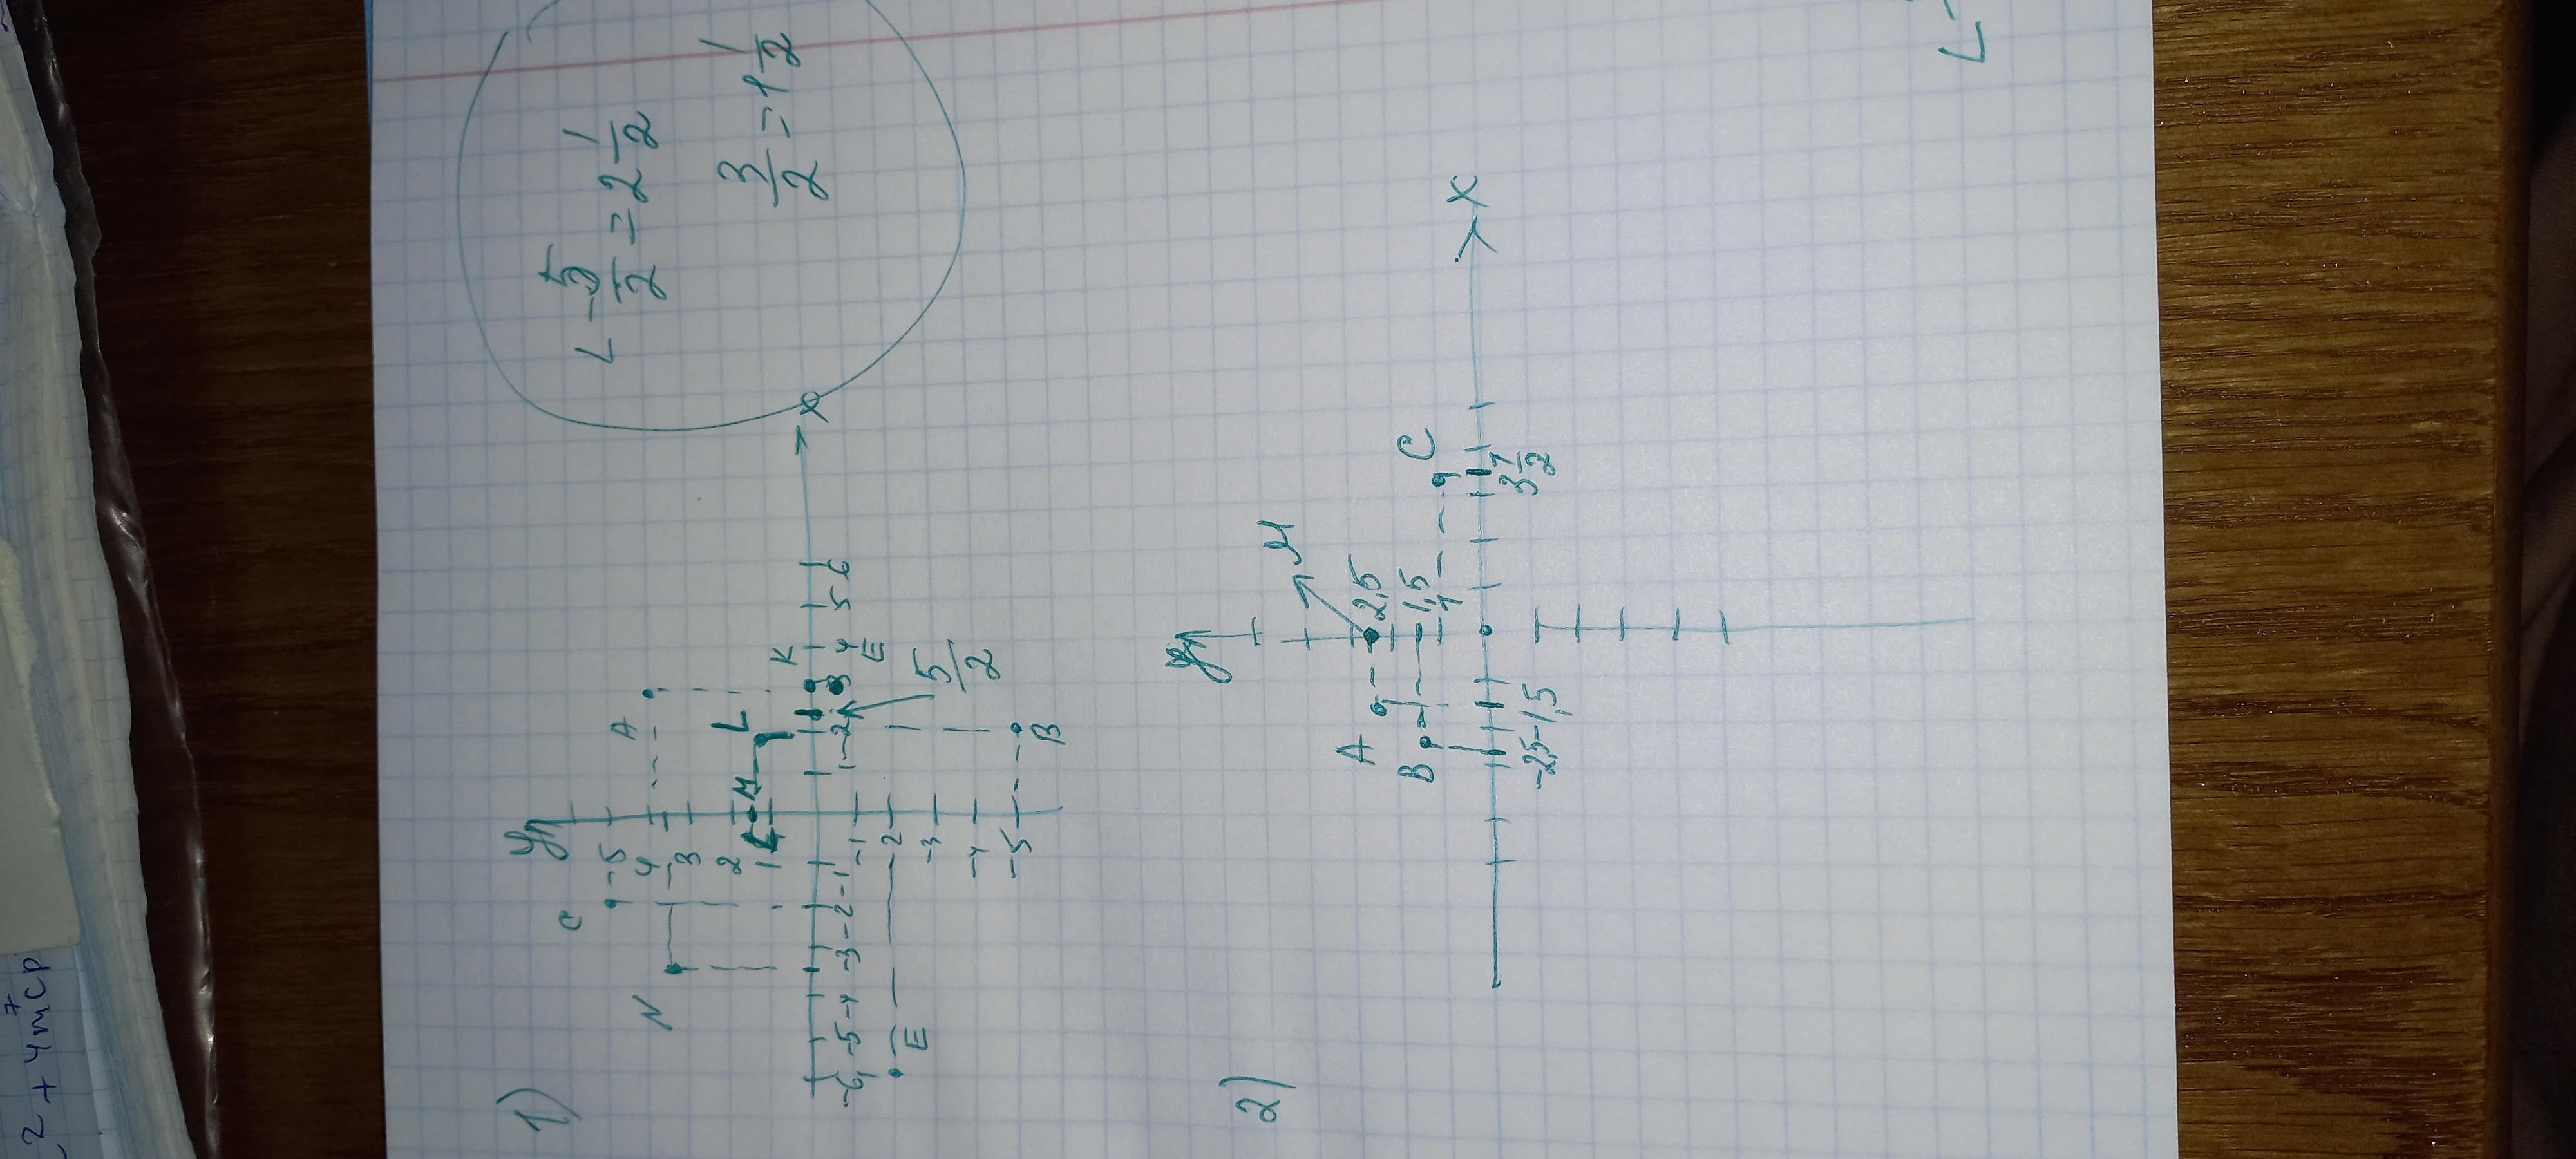 2 + 4m⁷cp
1)
L - 5/2 = 2 1/2
3/2 = 1 1/2
y
C
5
A
4
N
3
2
L
M
1
K
x
-6 -5 -4 -3 -2 -1 1 2 3 4 5 6
E
-1
-2
E
5/2
-3
-4
-5
B
2)
y
M
A
2,5
B
1,5
1
C
x
-2,5 -1,5
3 1/2
L